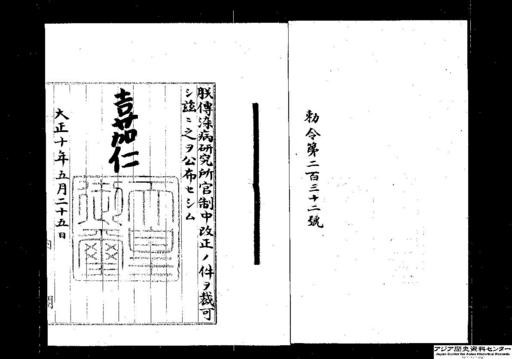 勅令第二百三十二號
朕傳染病研究所官制中改正ノ件ヲ裁可
シ茲ニ之ヲ公布セシム
嘉仁
天皇
御璽
大正十年五月二十五日
アジア歴史資料センター
Japan Center for Asian Historical Records